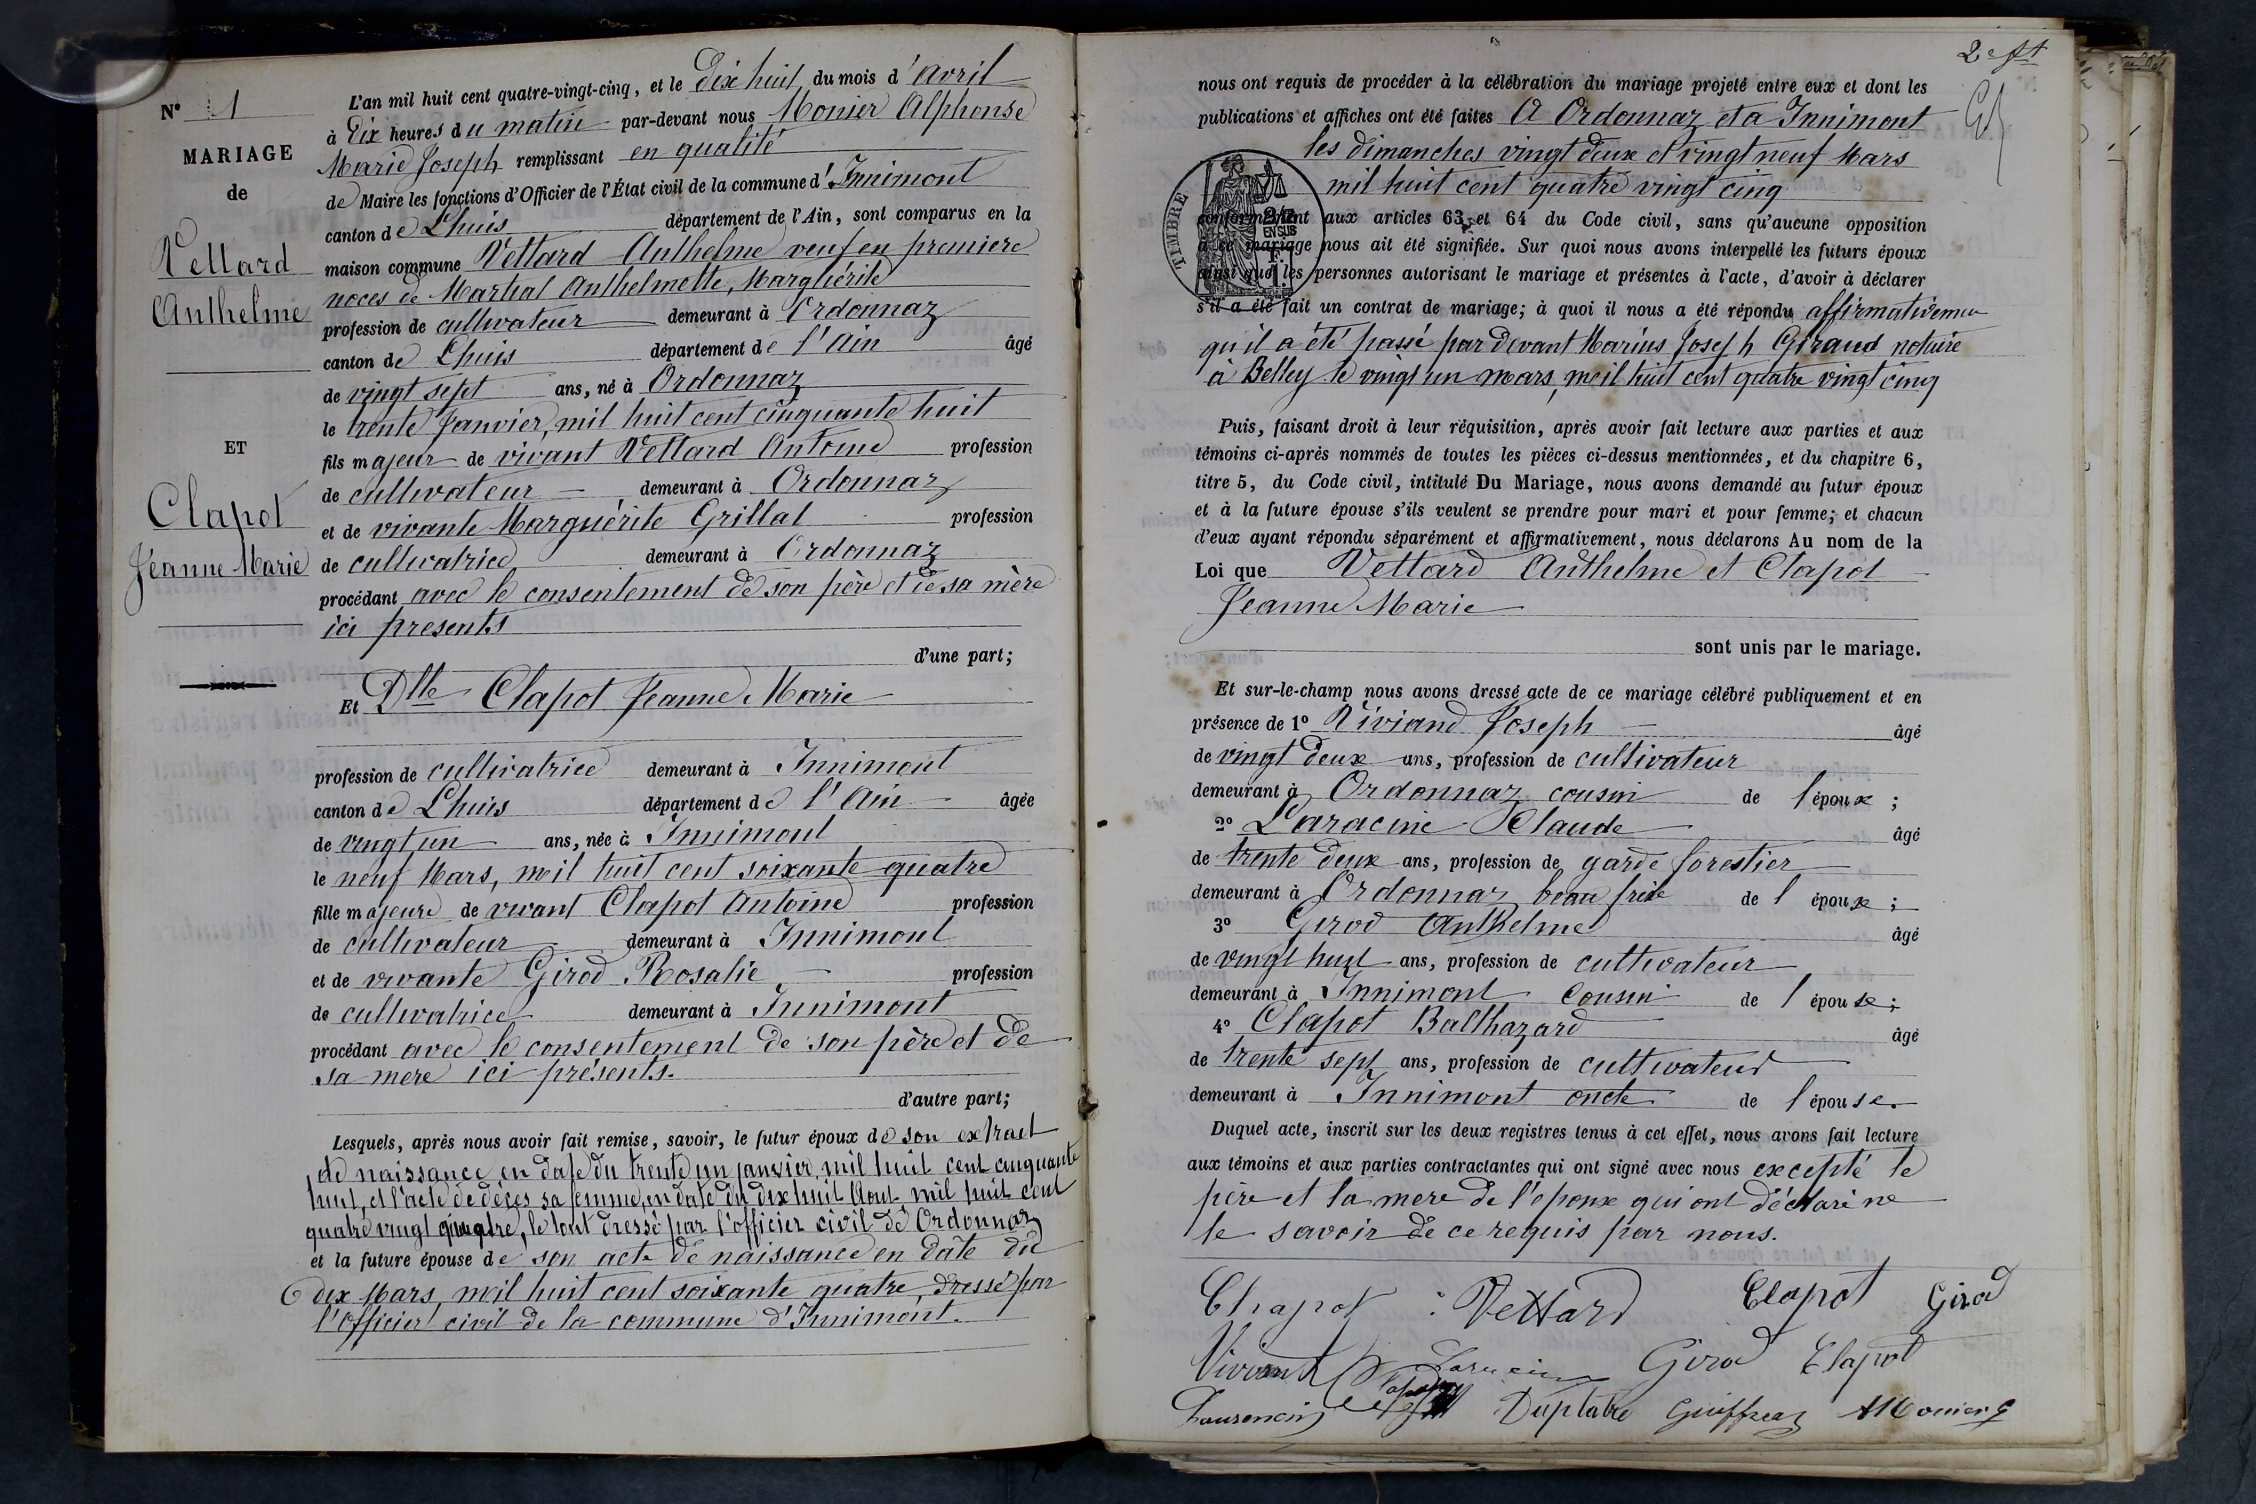 N° 1
MARIAGE
de
Vettard
Anthelme
ET
Clapot
Jeanne Marie
L'an mil huit cent quatre-vingt-cinq, et le dix huit du mois d'avril
à dix heures du matin par-devant nous Monier Alphonse
Marie Joseph remplissant en qualité
de Maire les fonctions d'Officier de l'État civil de la commune d'Innimont
canton de Lhuis département de l'Ain, sont comparus en la
maison commune Vettard Anthelme veuf en premiere
noces de Martial Anthelmette, Marguérite
profession de cultivateur demeurant à Ordonnaz
canton de Lhuis département de l'Ain âgé
de vingt sept ans, né à Ordonnaz
le trente Janvier, mil huit cent cinquante huit
fils majeur de vivant Vettard Antoine profession
de cultivateur demeurant à Ordonnaz
et de vivante Marguérite Grillat profession
de cultivatrice demeurant à Ordonnaz
procédant avec le consentement de son père et de sa mère
ici presents
d'une part;
Et Dlle Clapot Jeanne Marie
profession de cultivatrice demeurant à Innimont
canton de Lhuis département de l'Ain âgée
de vingt un ans, née à Innimont
le neuf Mars, mil huit cent soixante quatre
fille majeure de vivant Clapot Antoine profession
de cultivateur demeurant à Innimont
et de vivante Girod Rosalie profession
de cultivatrice demeurant à Innimont
procédant avec le consentement de son père et de
sa mere ici présents.
d'autre part;
Lesquels, après nous avoir fait remise, savoir, le futur époux de son extrait
de naissance en date du trente un janvier, mil huit cent cinquante
huit, et l'acte de décès sa femme, en date du dix huit Aout mil huit cent
quatre vingt quatre, le tout dressé par l'officier civil de Ordonnaz
et la future épouse de son acte de naissance en date du
dix Mars, mil huit cent soixante quatre, dressé par
l'Officier civil de la commune d'Innimont.
2e ft
nous ont requis de procéder à la célébration du mariage projeté entre eux et dont les
publications et affiches ont été faites A Ordonnaz et a Innimont
les dimanches vingt deux et vingt neuf Mars
mil huit cent quatre vingt cinq
TIMBRE
2/10
EN SUS
conformément aux articles 63 et 64 du Code civil, sans qu'aucune opposition
à ce mariage nous ait été signifiée. Sur quoi nous avons interpellé les futurs époux
ainsi que les personnes autorisant le mariage et présentes à l'acte, d'avoir à déclarer
s'il a été fait un contrat de mariage; à quoi il nous a été répondu affirmativemen
qu'il a été passé par devant Marius Joseph Giraud notaire
a Belley le vingt un mars, mil huit cent quatre vingt cinq
Puis, faisant droit à leur réquisition, après avoir fait lecture aux parties et aux
témoins ci-après nommés de toutes les pièces ci-dessus mentionnées, et du chapitre 6,
titre 5, du Code civil, intitulé Du Mariage, nous avons demandé au futur époux
et à la future épouse s'ils veulent se prendre pour mari et pour femme; et chacun
d'eux ayant répondu séparément et affirmativement, nous déclarons Au nom de la
Loi que Vettard Anthelme et Clapot
Jeanne Marie
sont unis par le mariage.
Et sur-le-champ nous avons dressé acte de ce mariage célébré publiquement et en
présence de 1° Viviand Joseph âgé
de vingt deux ans, profession de cultivateur
demeurant à Ordonnaz cousin de l'époux ;
2° Laracine Claude âgé
de trente deux ans, profession de garde forestier
demeurant à Ordonnaz beau frère de l époux ;
3° Girod Anthelme âgé
de vingt huit ans, profession de cultivateur
demeurant à Innimont Cousin de l épouse ;
4° Clapot Balthazard âgé
de trente sept ans, profession de cultivateur
demeurant à Innimont oncle de l épouse.
Duquel acte, inscrit sur les deux registres tenus à cet effet, nous avons fait lecture
aux témoins et aux parties contractantes qui ont signé avec nous excepté le
père et la mere de l'epoux qui ont déclaré ne
le savoir de ce requis par nous.
Chapot Vettard Clapot Girod
Viviand Laracine Girod Clapot
Laurencin Duplatre Guiffray AMonier